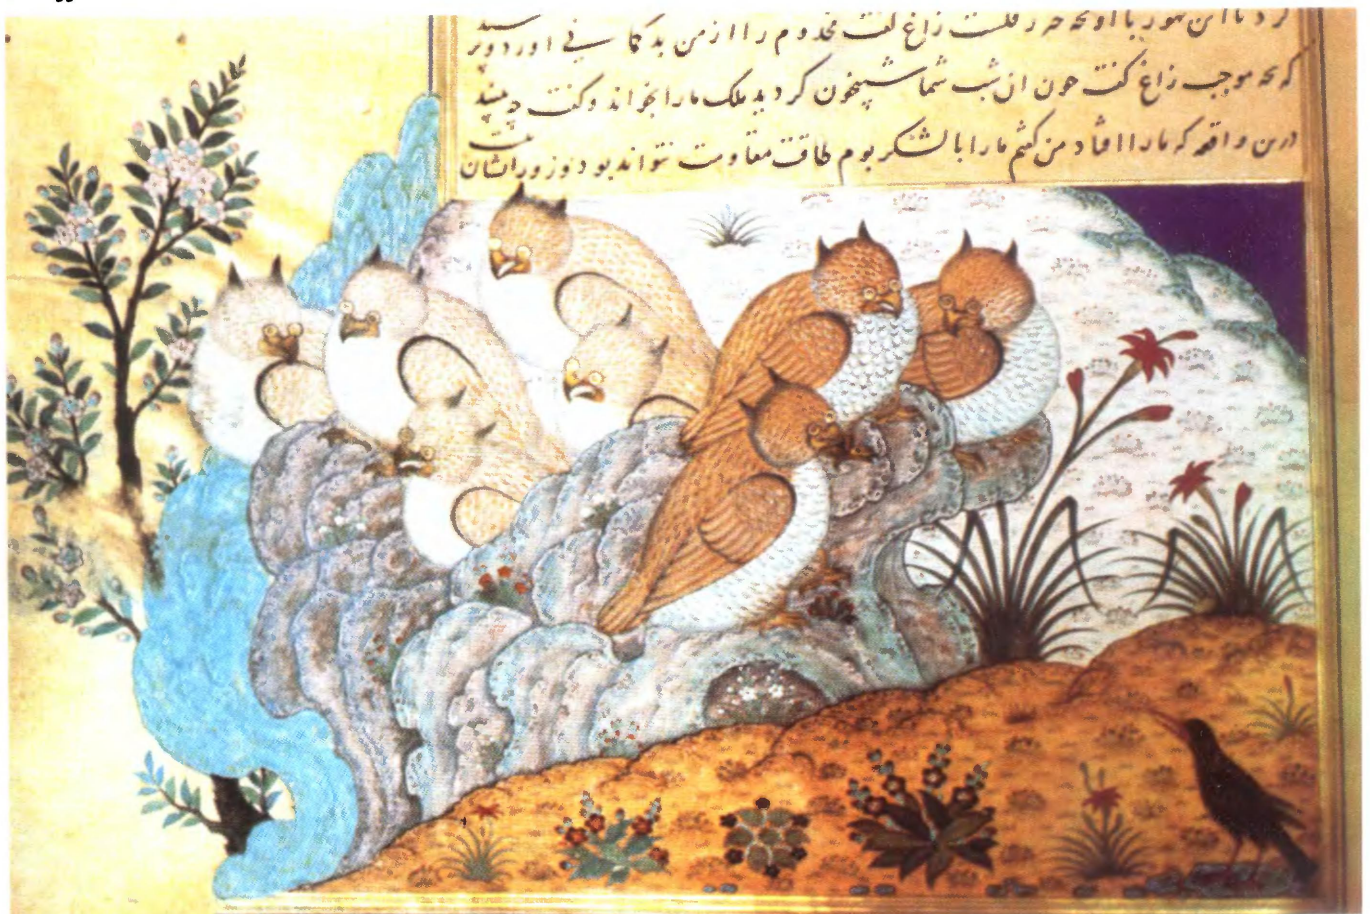 زاغ کفت مخدوم را از من بد کمانی اورد و پرسید
که بچه موجب زاغ کفت چون ان شب شما شبیخون کردید ملک ما را بخواند و کفت چه بینید
درین واقعه که ما را افتاد من کفتم ما را با لشکر بوم طاقت مقاومت نتواند بود و زور ایشان